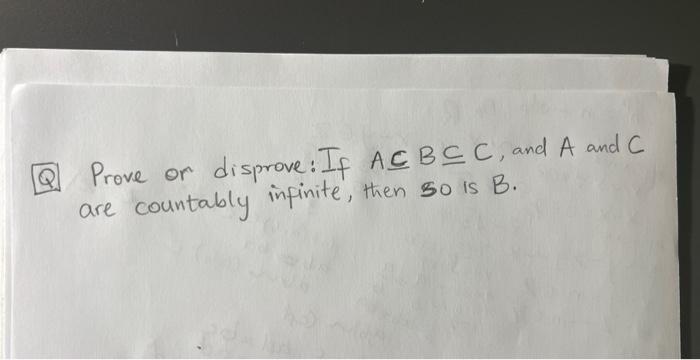 Q Prove or disprove: If A ⊆ B ⊆ C, and A and C
are countably infinite, then so is B.